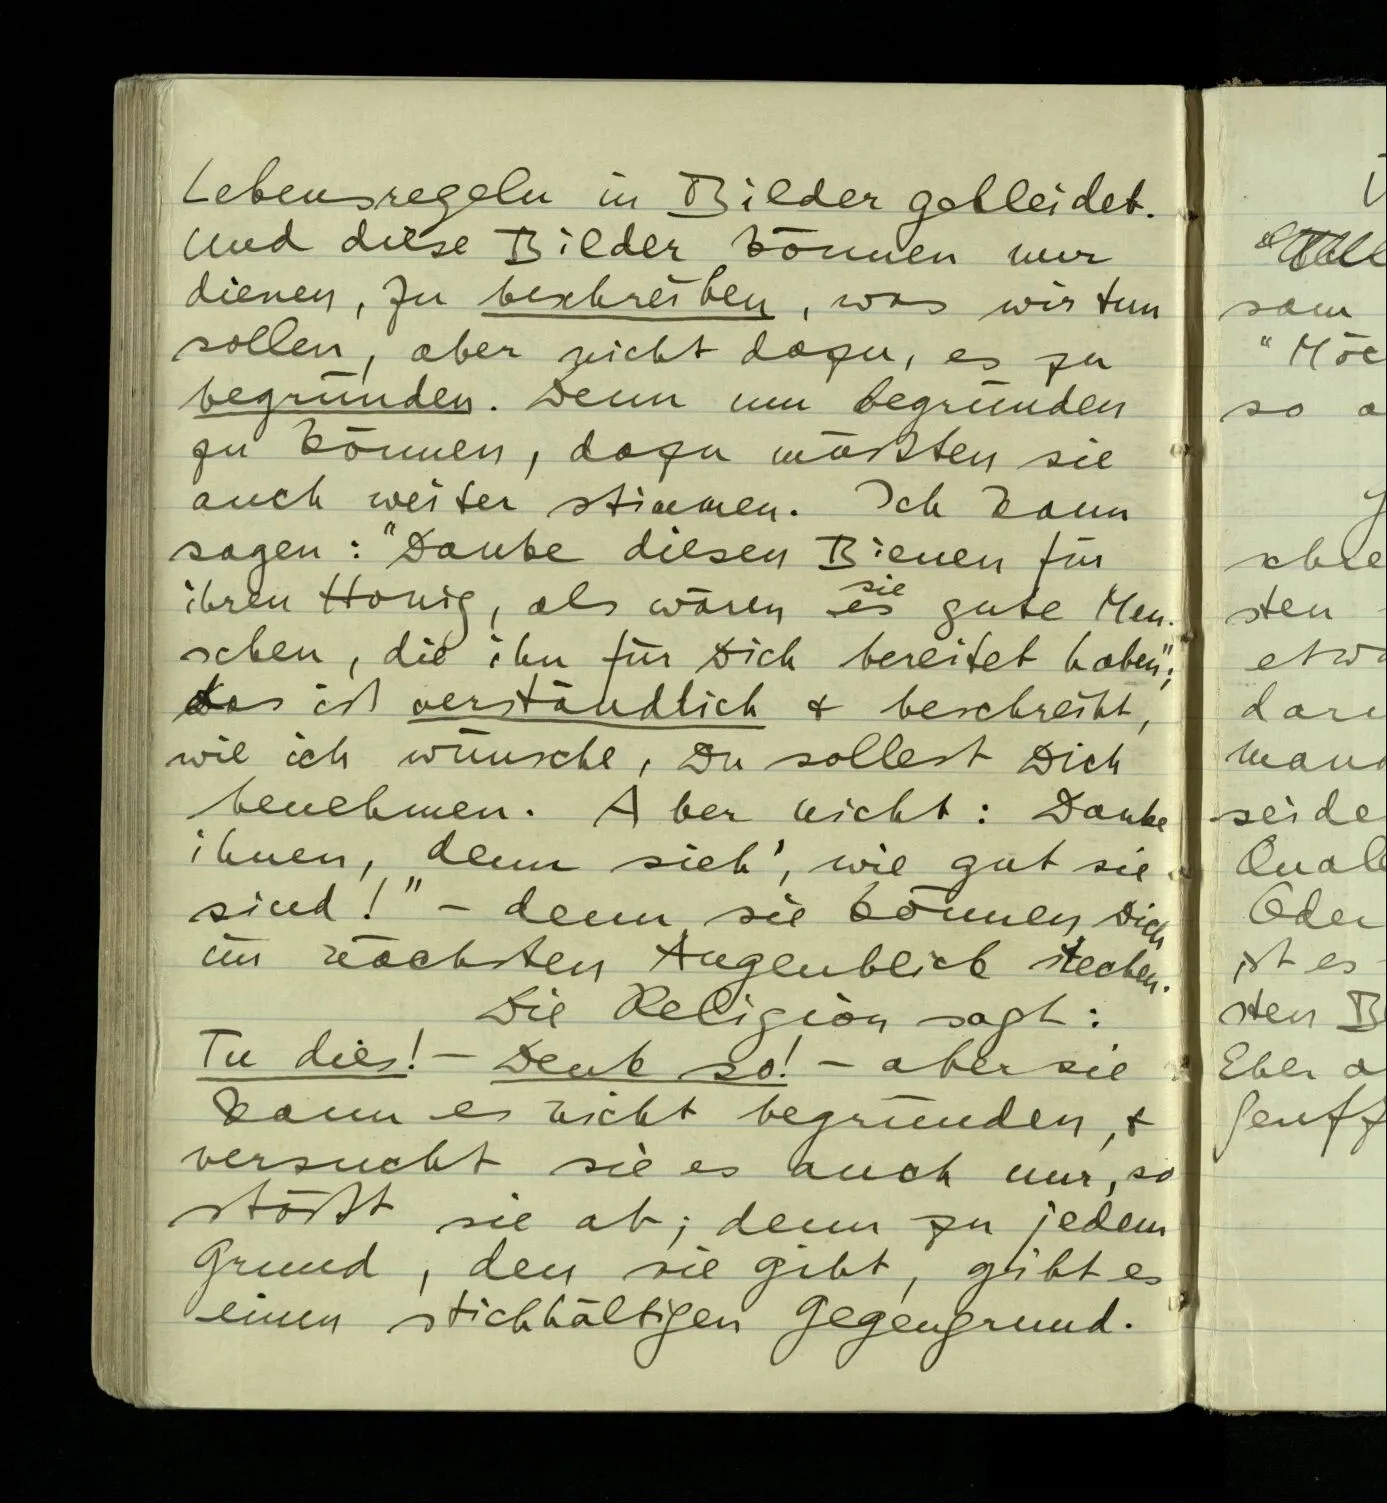 Lebensregeln in Bilder gekleidet.
Und diese Bilder können nur
dienen, zu beschreiben, was wir tun
sollen, aber nicht dazu, es zu
begründen. Denn um begründen
zu können, dazu müßten sie
auch weiter stimmen. Ich kann
sagen: "Danke diesen Bienen für
ihren Honig, als wären es sie gute Men-
schen, die ihn für Dich bereitet haben";
das ist verständlich & beschreibt,
wie ich wünsche, Du sollest Dich
benehmen. Aber nicht: Danke
ihnen, denn sieh', wie gut sie
sind!" – denn sie können Dich
im nächsten Augenblick stechen.
Die Religion sagt:
Tu dies! – Denk so! – aber sie
kann es nicht begründen, &
versucht sie es auch nur, so
stößt sie ab; denn zu jedem
Grund, den sie gibt, gibt es
einen stichhältigen Gegengrund.
sam
"Möc
so a
schre
sten
etwa
daru
mand
seide
Qual
Oder
ist es
sten B
Eher a